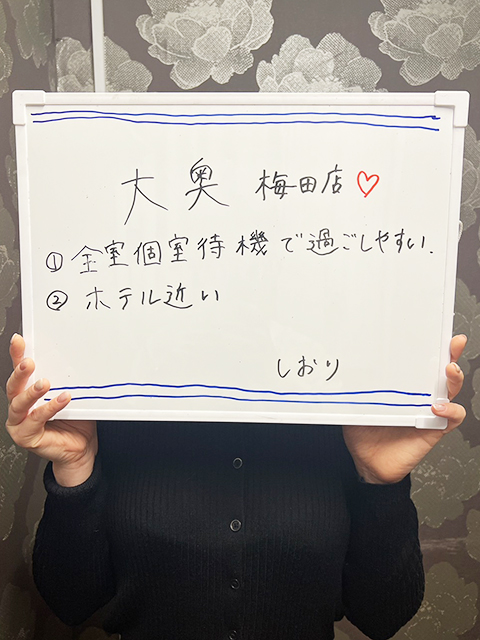 大奥 梅田店♡
① 全室個室待機で過ごしやすい.
② ホテル近い
しおり